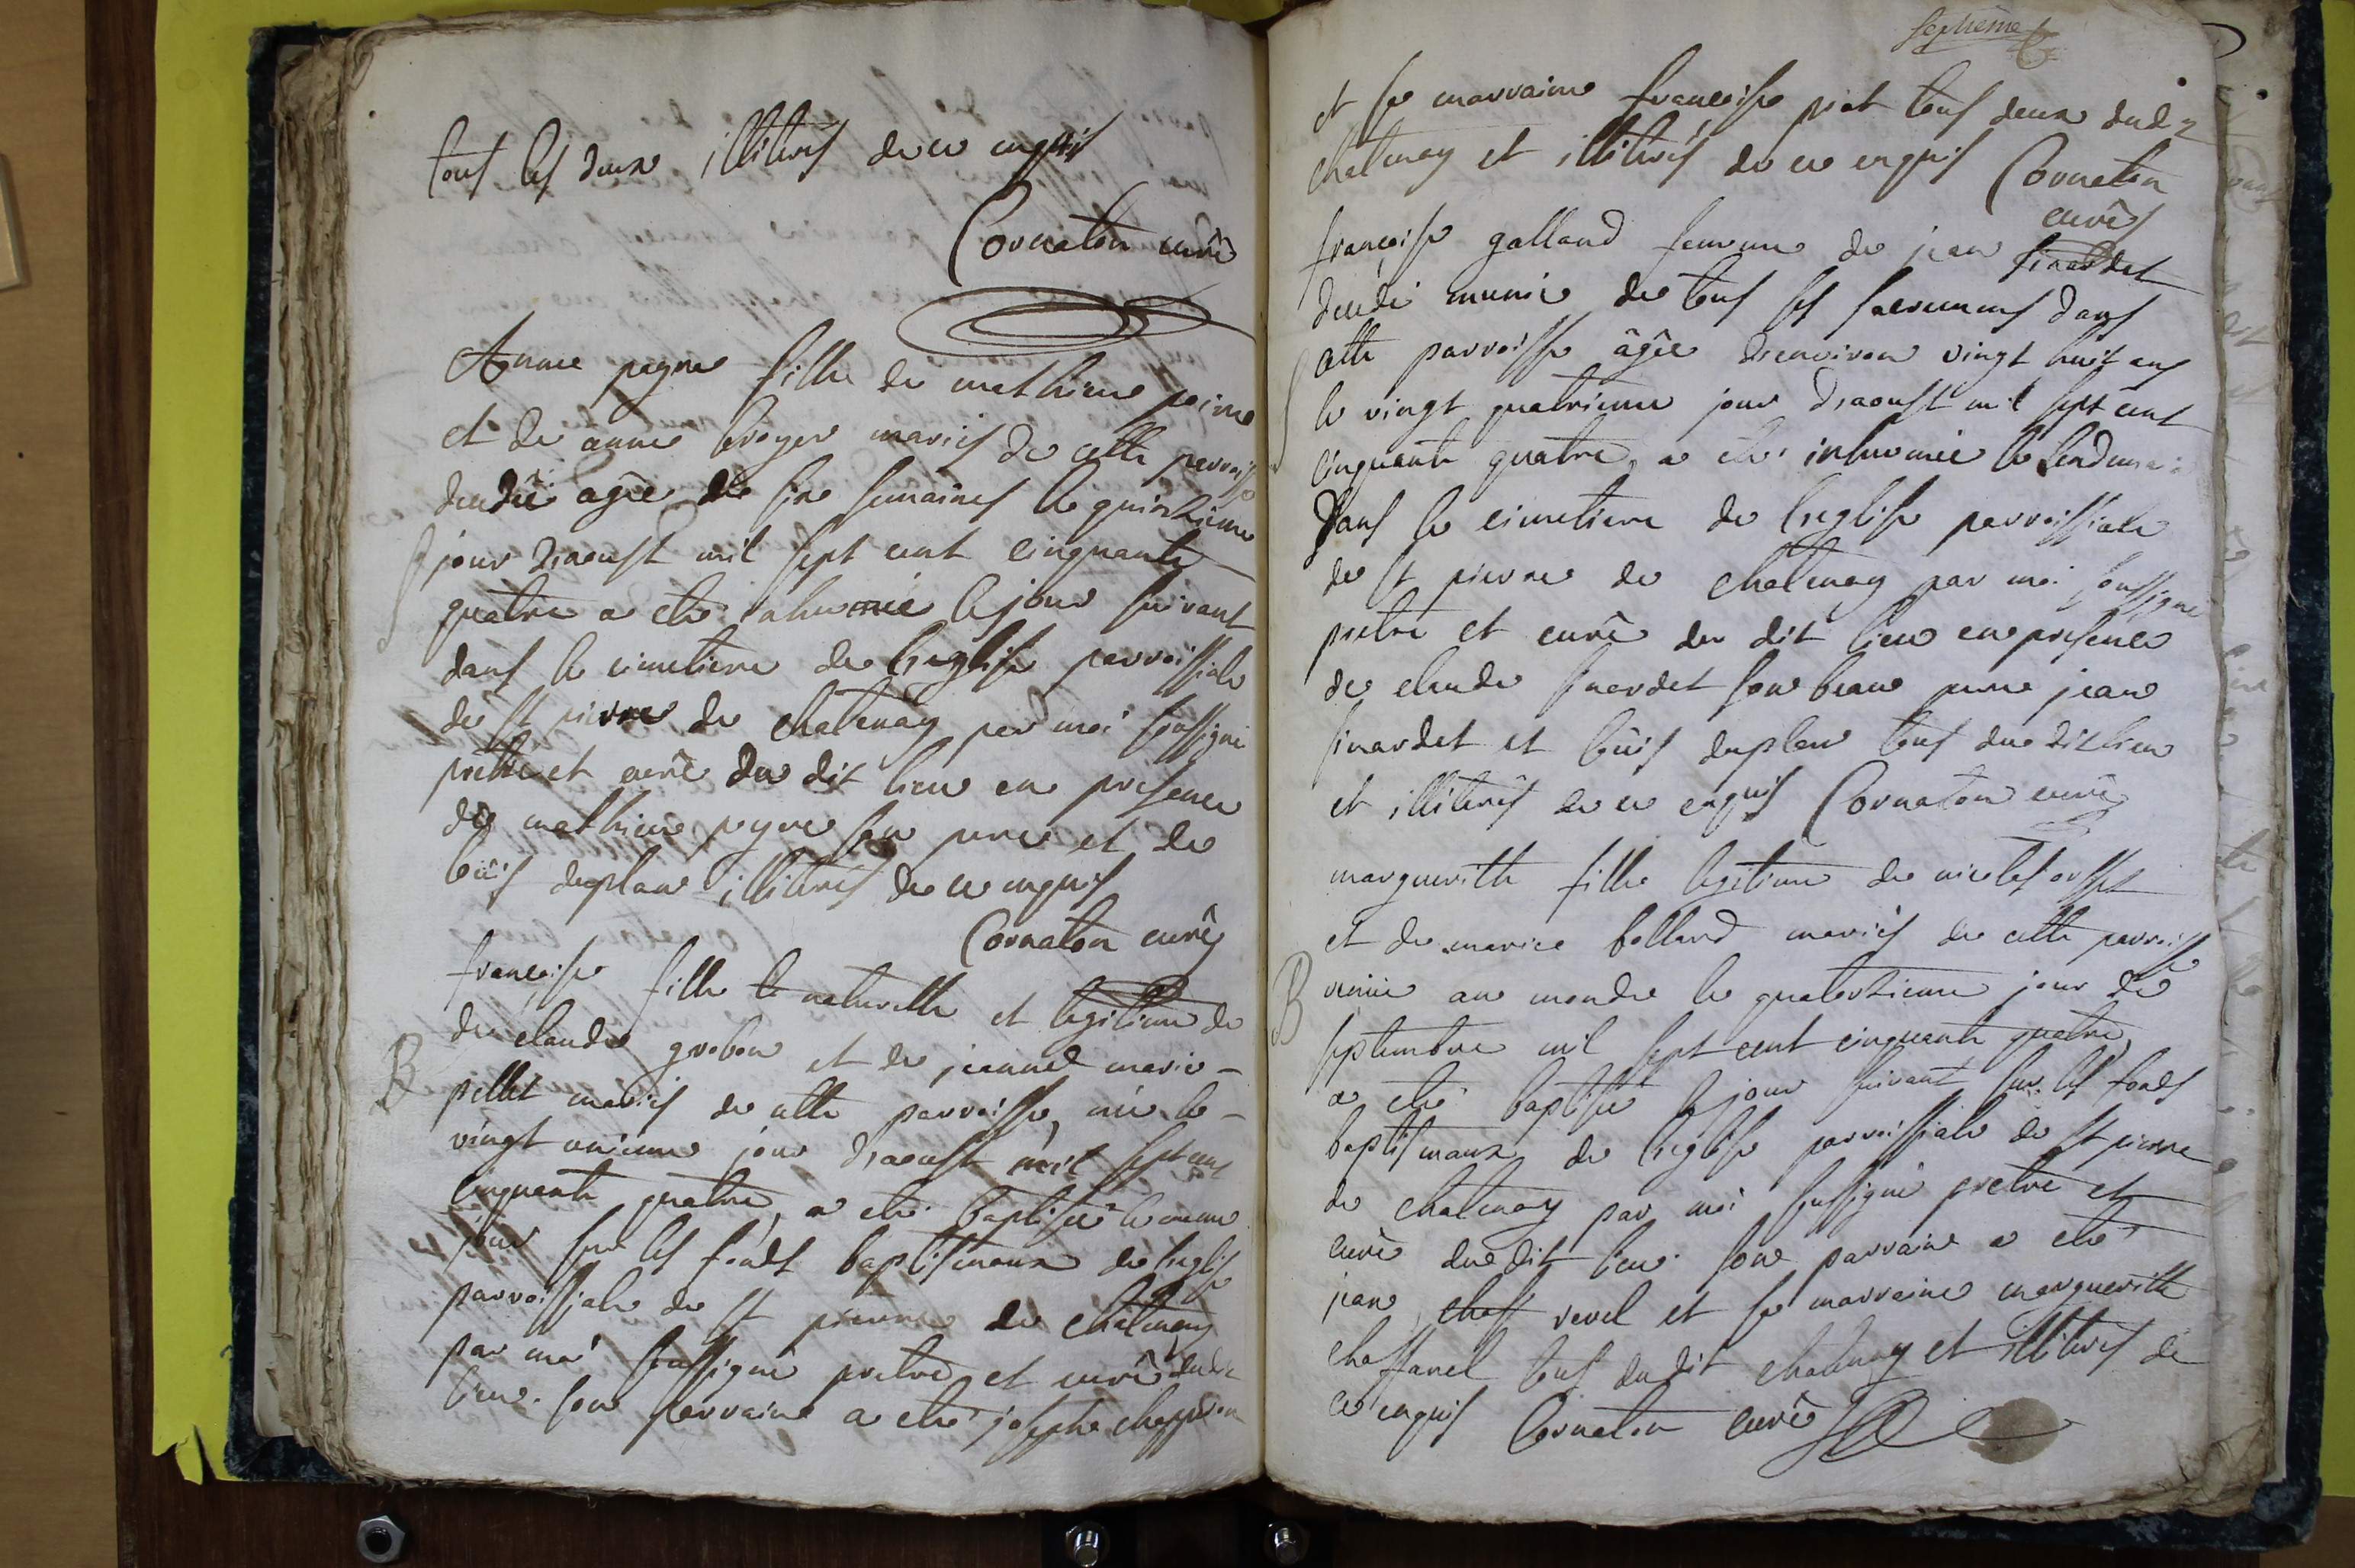 tous les deux illiterés de ce enquis
Cornaton curé
Anne peyne fille de mathieu peine
et de anne broyer mariés de cette parroisse
decedée agée de six semaines le quinzieme
S jour d'aoust mil sept cent cinquante
quatre a eté inhumée le jour suivant
dans le cimetiere de l'eglise parroissiale
de st pierre de chatenay par moi soussigné
pretre et curé du dit lieu en presence
de mathieu peyne son pere et de
loüis duplan illiterés de ce enquis
Cornaton curé
francoise fille naturelle et legitime de
de claude grobon et de jeanne marie
B pillet mariés de cette parroisse, née le
vingt unieme jour d'aoust mil sept cent
cinquante quatre, a eté baptisée le meme
jour sur les fonds baptismaux de l'eglise
parroissiale de st pierre de chatenay
par moi soussigné pretre et curé dudit
lieu. son parrain a eté joseph
septieme
et sa marraine francoise piat tous deux dud
chatenay et illiterés de ce enquis Cornaton
curé
françoise galland femme de jean sinardet
decedé munie de tous ses sacremens dans
cette parroisse âgée d'environ vingt huit ans
S le vingt quatrieme jour d'aoust mil sept cent
cinquante quatre, a eté inhumée le lendemain
dans le cimetiere de l'eglise parroissiale
de st pierre de chatenay par moi soussigné
pretre et curé du dit lieu en presence
de claude sinardet son beau pere jean
sinardet et loüis duplan tous du dit lieu
et illiterés de ce enquis Cornaton curé
margueritte fille legitime de nicolas
et de marie bolland mariés de cette parroisse
B venüe au monde le quatorzieme jour de
septembre mil sept cent cinquante quatre,
a eté baptisée le jour suivant sur les fonds
baptismaux de l'eglise parroissiale de st pierre
de chatenay par moi soussigné pretre et
curé du dit lieu. son parrain a eté
jean chaff revel et sa marraine margueritte
chaffanel tous du dit chatenay et illiterés de
ce enquis Cornaton curé